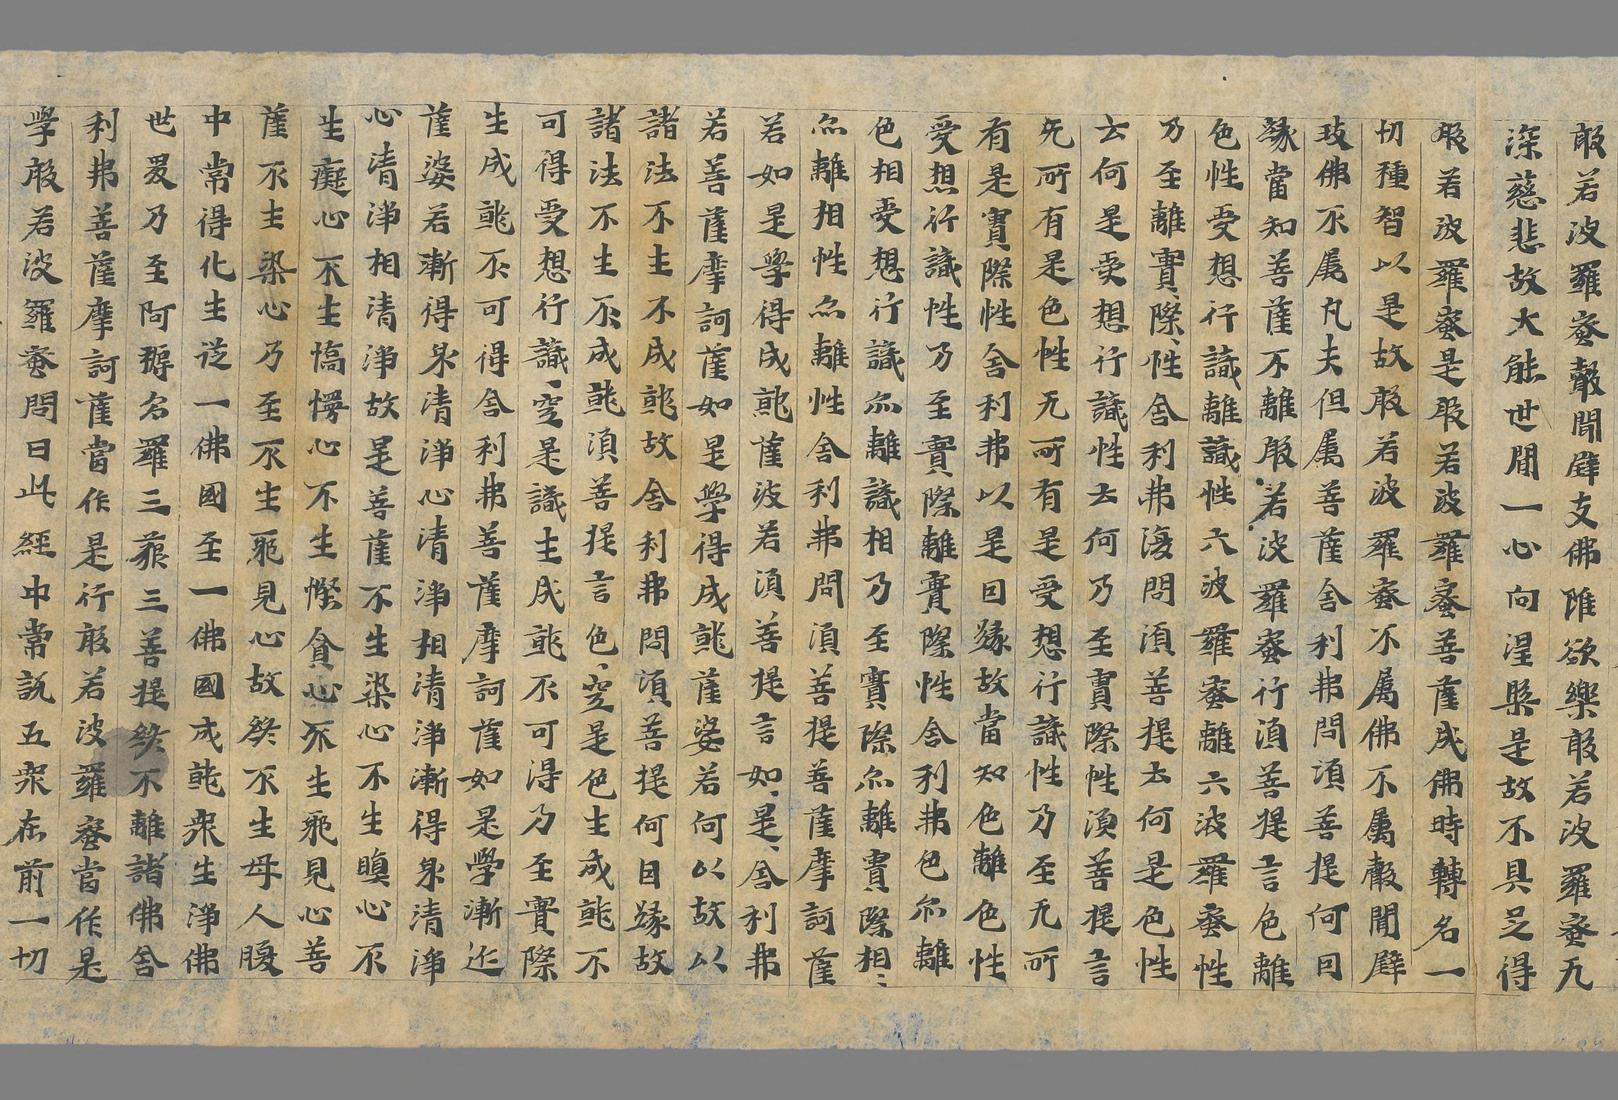 般若波羅蜜聲聞辟支佛唯欲樂般若波羅蜜无
深慈悲故大能世間一心向涅槃是故不具足得
般若波羅蜜是般若波羅蜜菩薩成佛時轉名一
切種智以是故般若波羅蜜不属佛不属聲聞辟
支佛不属凡夫但属菩薩舍利弗問湏菩提何因
縁當知菩薩不離般若波羅蜜行湏菩提言色離
色性受想行識離識性六波羅蜜離六波羅蜜性
乃至離實際性舍利弗復問湏菩提云何是色性
云何是受想行識性云何乃至實際性湏菩提言
无所有是色性无所有是受想行識性乃至无所
有是實際性舍利弗以是因縁故當知色離色性
受想行識性乃至實際離實際性舍利弗色尒離
色相受想行識尒離識相乃至實際尒離實際相
尒離相性尒離性舍利弗問湏菩提菩薩摩訶薩
若如是學得成就薩波若湏菩提言如是舍利弗
若菩薩摩訶薩如是學得成就薩婆若何以故以
諸法不生不成就故舍利弗問湏菩提何因縁故
諸法不生不成就湏菩提言色空是色生成就不
可得受想行識空是識生成就不可得乃至實際
生成就不可得舍利弗菩薩摩訶薩如是學漸近
薩婆若漸得身清淨心清淨相清淨漸得身清淨
心清淨相清淨故是菩薩不生染心不生瞋心不
生癡心不生憍慢心不生慳貪心不生邪見心菩
薩不生染心乃至不生邪見心故終不生母人腹
中常得化生從一佛國至一佛國成就衆生淨佛
世界乃至阿耨多羅三藐三菩提終不離諸佛舍
利弗菩薩摩訶薩當作是行般若波羅蜜當作是
學般若波羅蜜問曰此經中常說五衆在前一切